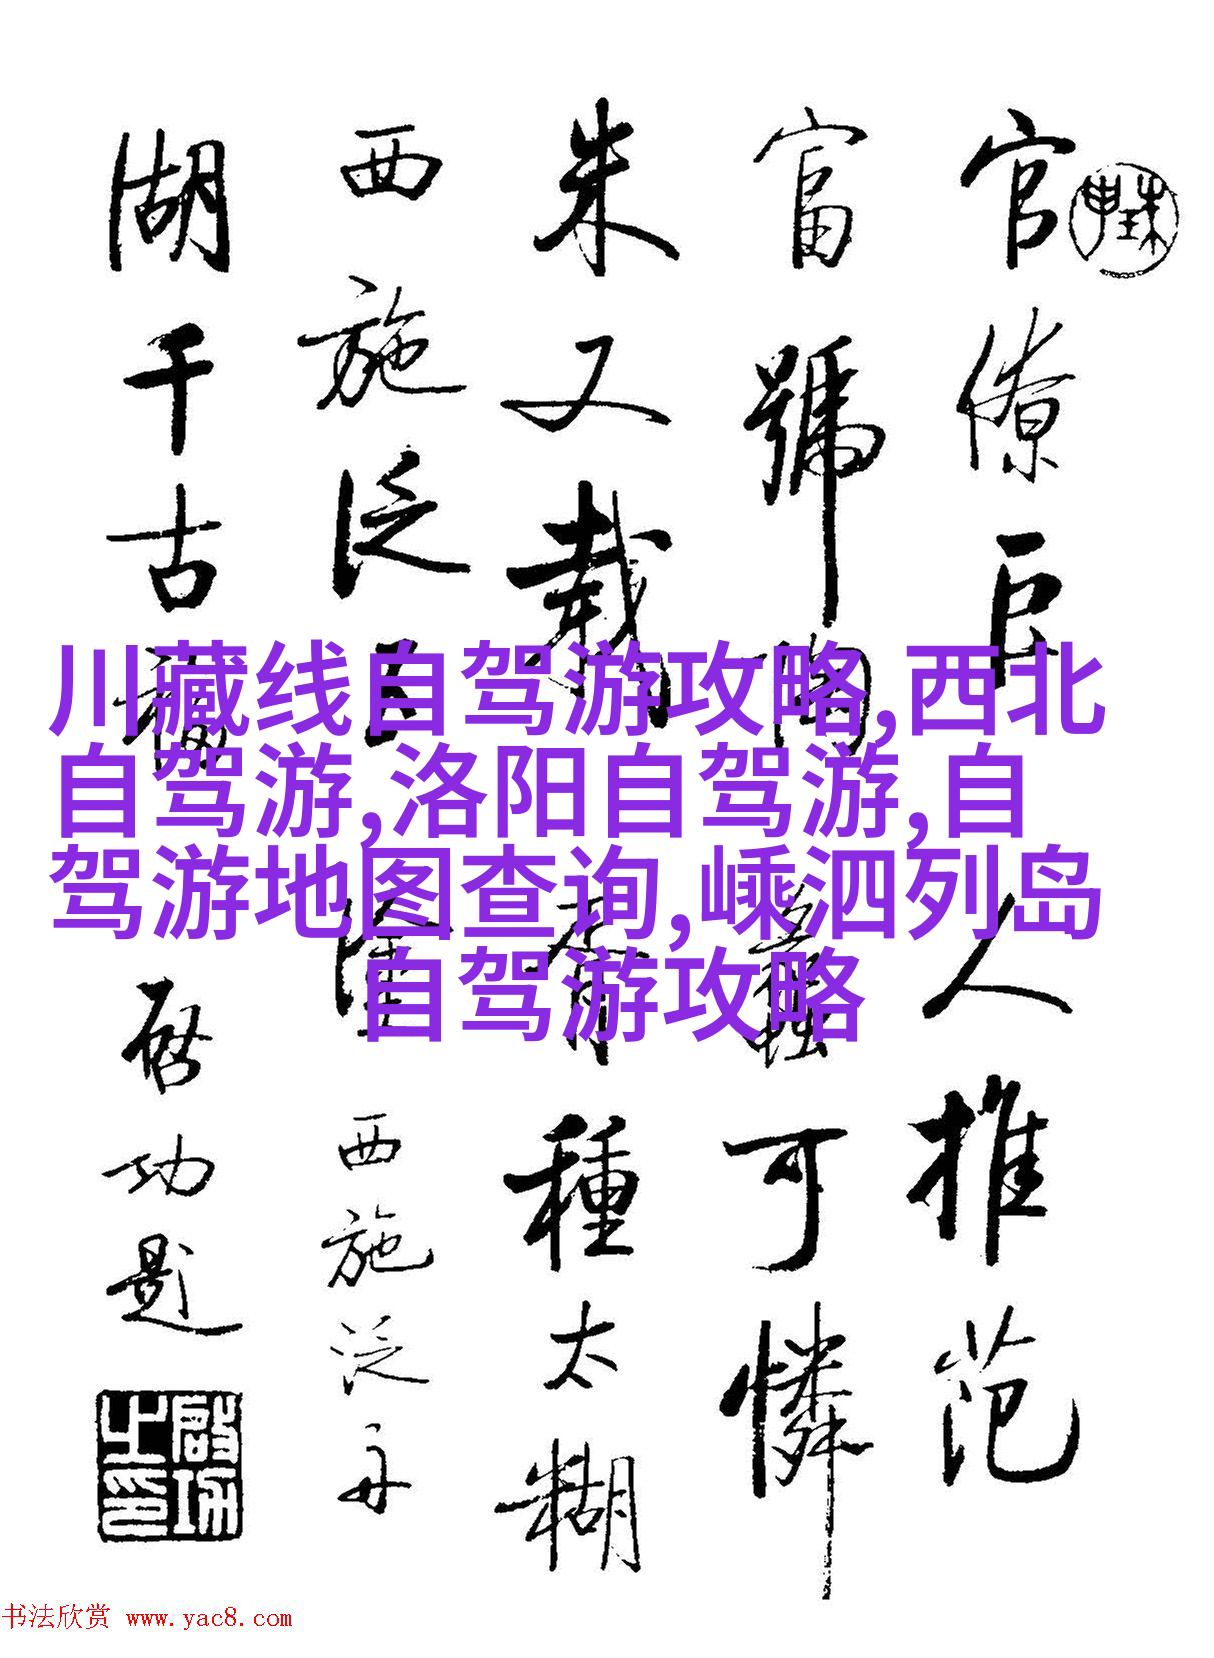 官僚臣人推范
富號陶 蠡可憐
朱又載 青種太糊
西施泛 湖 西施泛舟
湖千古 啓功題
川藏线自驾游攻略,西北
自驾游,洛阳自驾游,自
驾游地图查询,嵊泗列岛
自驾游攻略
书法欣赏 www.yac8.com